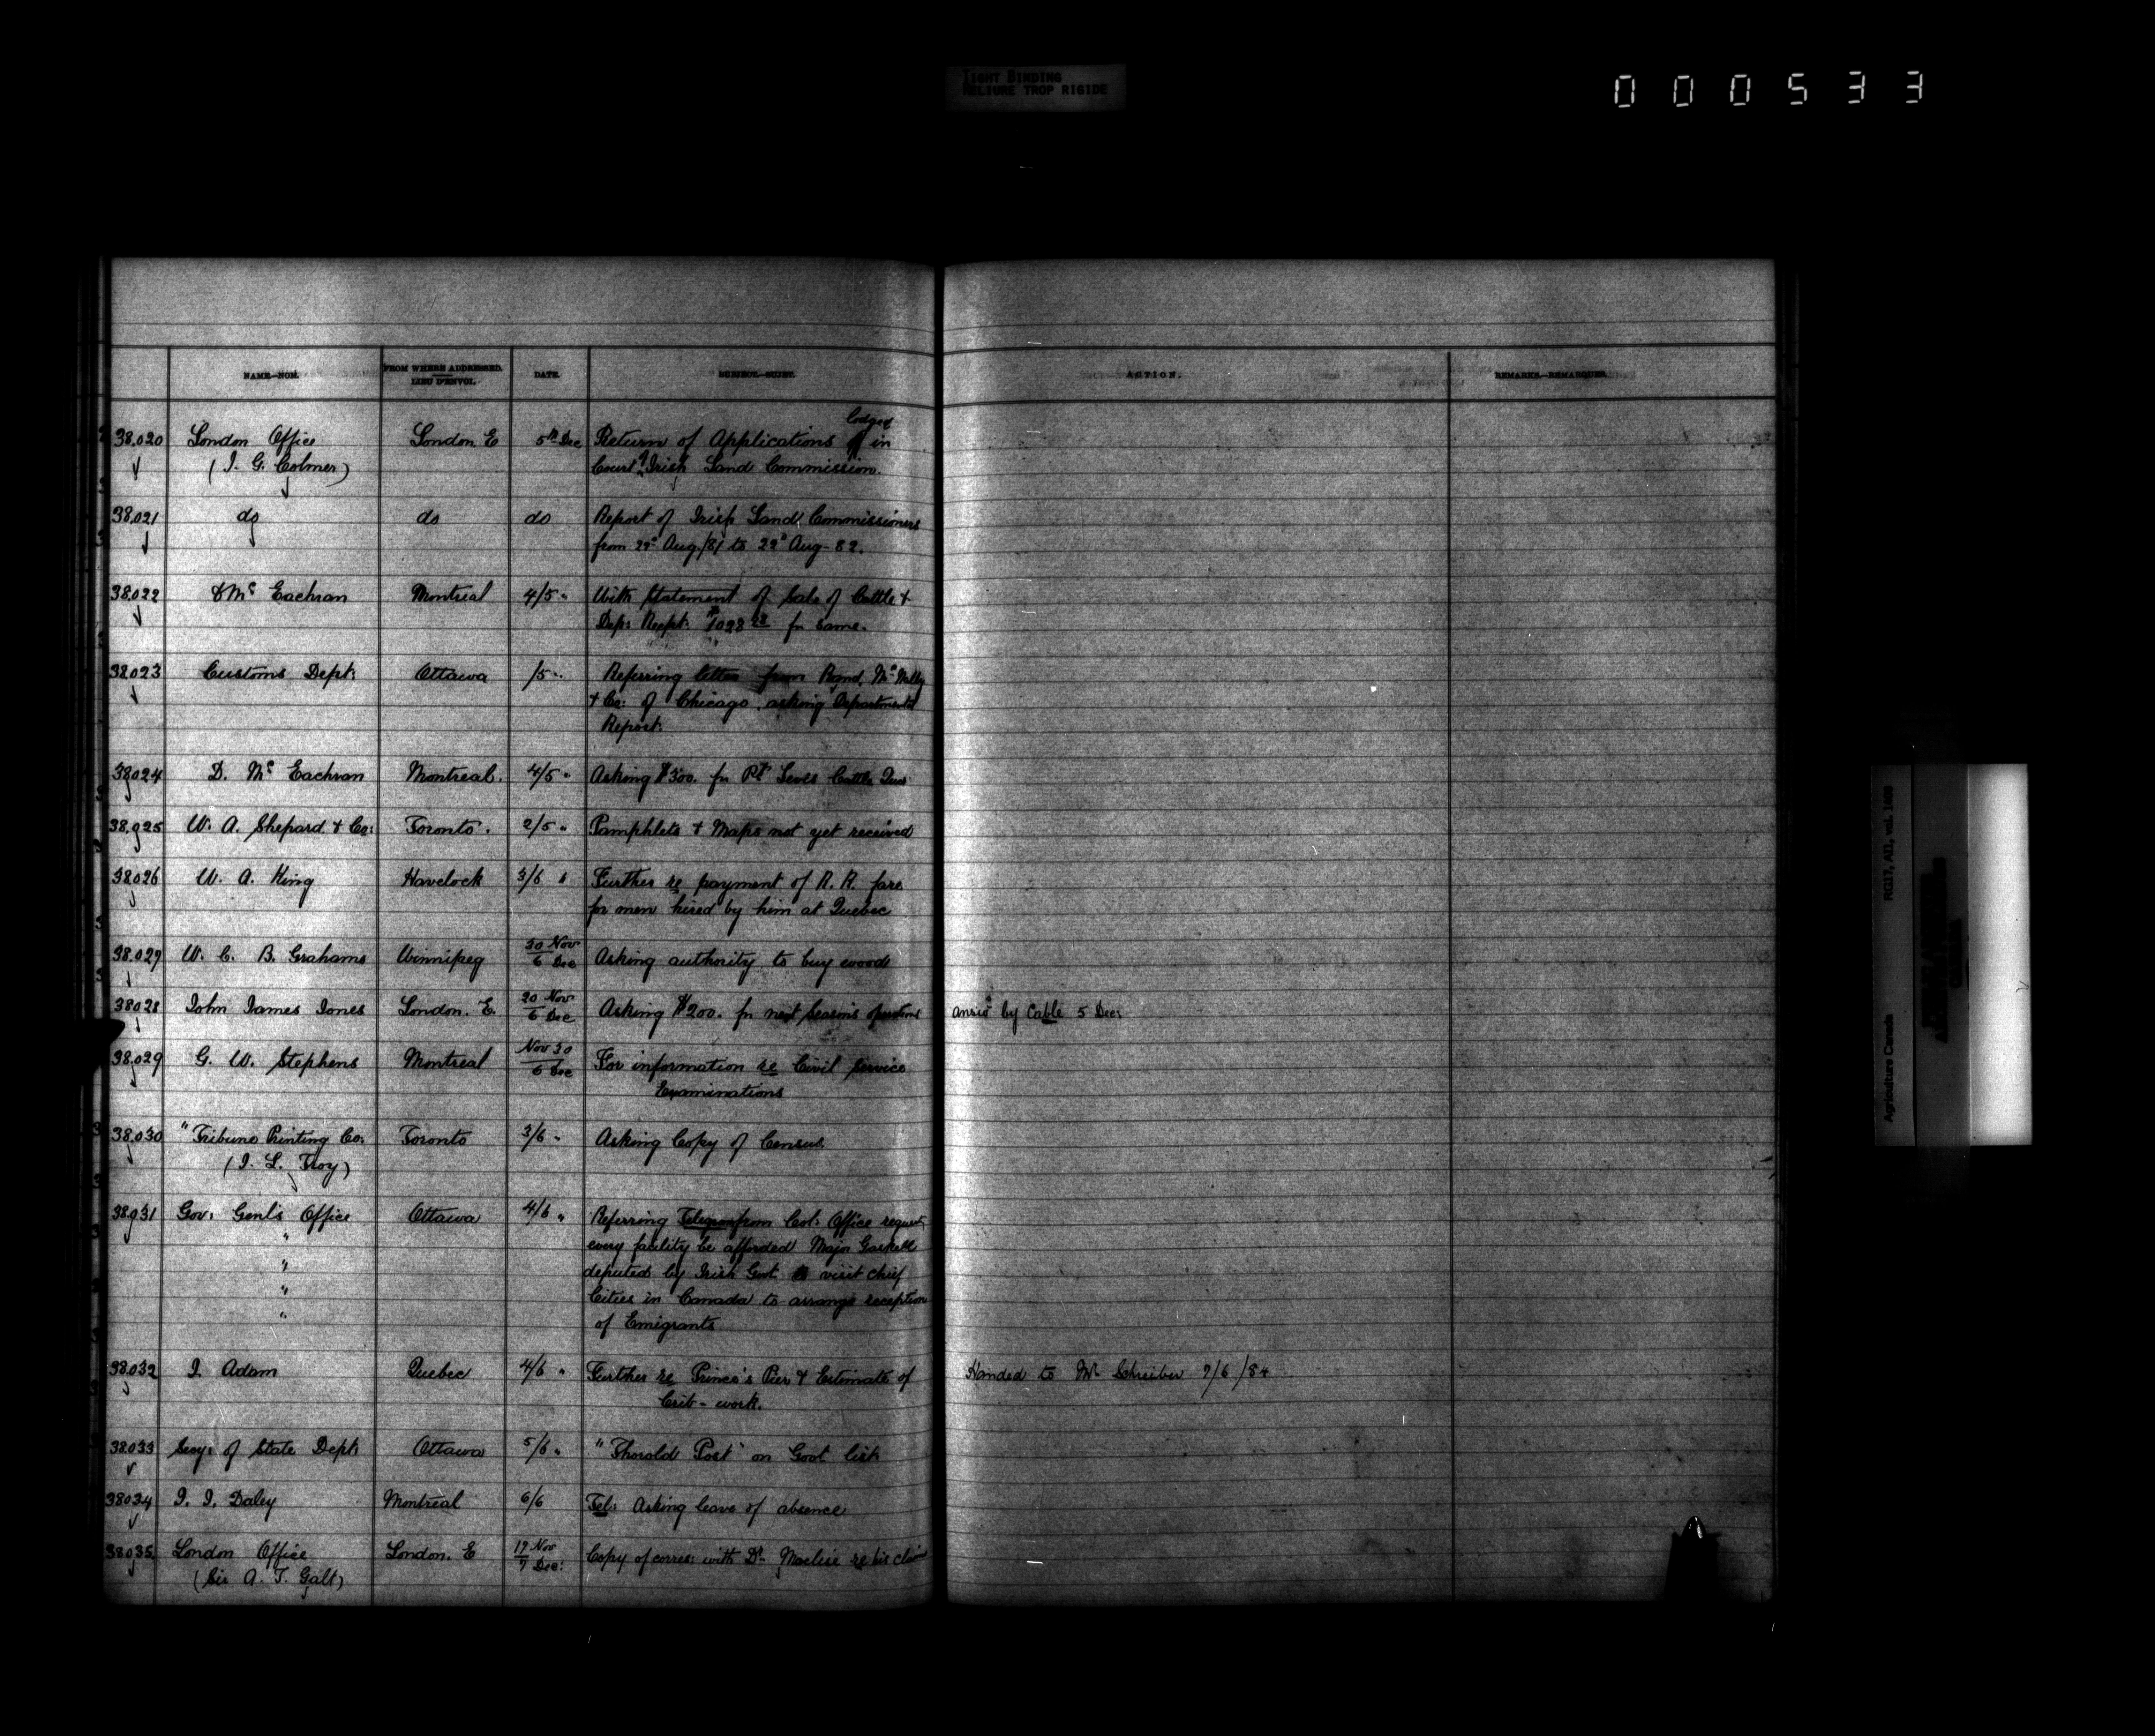 TIGHT BINDING
RELIURE TROP RIGIDE
000533
NAME—NOM.
FROM WHERE ADDRESSED.
LIEU D'ENVOI.
DATE.
SUBJECT—SUJET.
ACTION.
REMARKS—REMARQUES.
38.020 London Office London E 5th Dec Return of Applications lodged in
(J. G. Colmer) Court of Irish Land Commission.
38.021 do do do Report of Irish Land Commissioners
from 22d Aug./81 to 22d Aug - 82.
38.022 Mc Eachran Montreal 4/5 " With statement of Sale of Cattle +
Dep: Recpt: for same.
38.023 Customs Dept: Ottawa /5 " Referring letter from Rand, McNally
+ Co: of Chicago, asking Departmental
Report.
38.024 D. Mc Eachran Montreal. 4/5 " Asking $300. for Pt Levis Cattle Quar
38.025 W. A. Shepard + Co: Toronto. 2/5 " Pamphlets + Maps not yet received
38.026 W. A. King Havelock 3/6 " Further re payment of R. R. fare
for men hired by him at Quebec
38.027 W. C. B. Grahame Winnipeg 30 Nov
6 Dec Asking authority to buy wood
38.028 John James Jones London. E. 20 Nov
6 Dec Asking $200. for next Season's operations ansd by Cable 5 Dec:
38.029 G. W. Stephens Montreal Nov 30
6 Dec For information re Civil Service
Examinations
38.030 "Tribune Printing Co: Toronto 3/6 " Asking Copy of Census.
(J. L. Troy)
38.031 Gov: Genl's Office Ottawa 4/6 " Referring Telegram from Col: Office request
" every facility be afforded Major Gaskell
" deputed by Irish Govt to visit chief
" Cities in Canada to arrange reception
" of Emigrants
38.032 J. Adam Quebec 4/6 " Further re Prince's Pier + Estimate of Handed to Mr Schreiber 7/6/84
Crib-work.
38.033 Secy: of State Dept: Ottawa 5/6 " "Thorold Post" on Govt list
38.034 J. J. Daley Montreal 6/6 Tel: Asking leave of absence
38.035 London Office London. E 17 Nov
7 Dec: Copy of corres: with Dr. Maclise re his claim
(Sir A. T. Galt)
Agriculture Canada
RG17, AII, vol. 1493